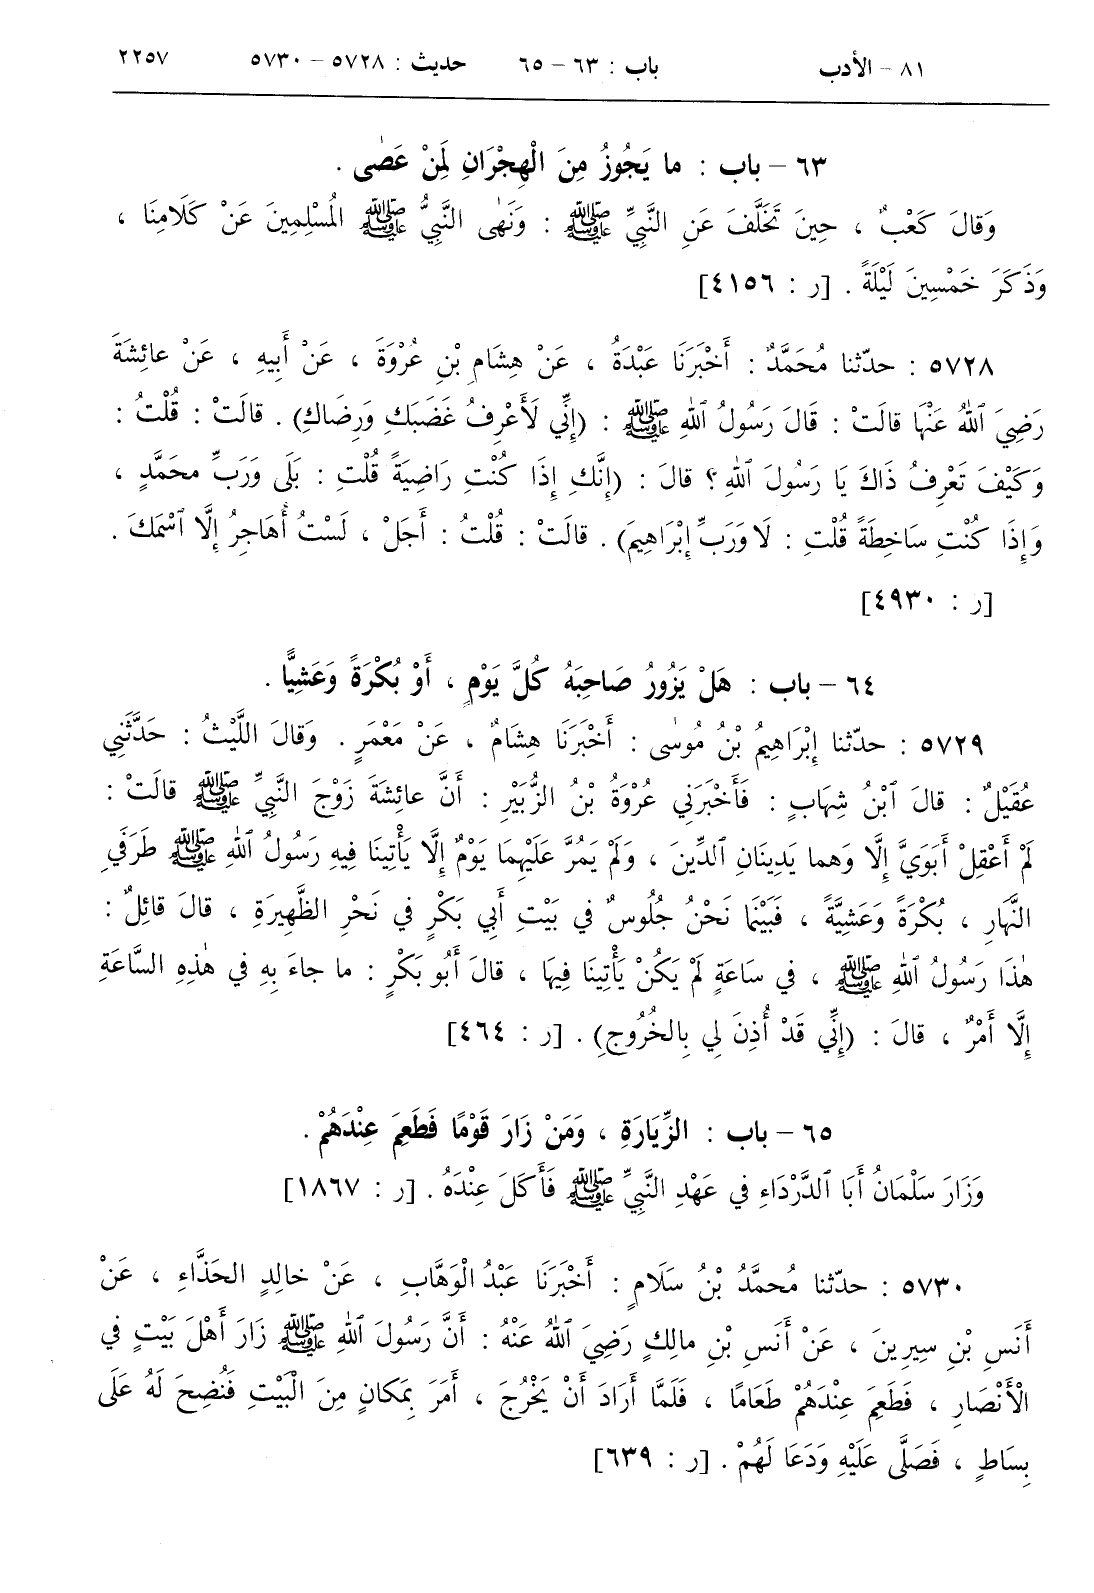 ٨١ – الأدب باب : ٦٣ – ٦٥ حديث : ٥٧٢٨ – ٥٧٣٠ ٢٢٥٧
٦٣ – باب : ما يَجُوزُ مِنَ الْهِجْرَانِ لِمَنْ عَصٰى .
وَقالَ كَعْبٌ ، حِينَ تَخَلَّفَ عَنِ النَّبِيِّ ﷺ : وَنَهٰى النَّبِيُّ ﷺ المُسْلِمِينَ عَنْ كَلَامِنَا ،
وَذَكَرَ خَمْسِينَ لَيْلَةً . [ر : ٤١٥٦]
٥٧٢٨ : حدّثنا مُحَمَّدٌ : أَخْبَرَنَا عَبْدَةُ ، عَنْ هِشَامِ بْنِ عُرْوَةَ ، عَنْ أَبِيهِ ، عَنْ عائِشَةَ
رَضِيَ ٱللهُ عَنْهَا قالَتْ : قَالَ رَسُولُ ٱللهِ ﷺ : (إِنِّي لَأَعْرِفُ غَضَبَكِ وَرِضَاكِ) . قالَتْ : قُلْتُ :
وَكَيْفَ تَعْرِفُ ذَاكَ يَا رَسُولَ ٱللهِ ؟ قالَ : (إِنَّكِ إِذَا كُنْتِ رَاضِيَةً قُلْتِ : بَلَى وَرَبِّ محَمَّدٍ ،
وَإِذَا كُنْتِ سَاخِطَةً قُلْتِ : لَا وَرَبِّ إِبْرَاهِيمَ) . قالَتْ : قُلْتُ : أَجَلْ ، لَسْتُ أُهَاجِرُ إِلَّا ٱسْمَكَ .
[ر : ٤٩٣٠]
٦٤ – باب : هَلْ يَزُورُ صَاحِبَهُ كُلَّ يَوْمٍ ، أَوْ بُكْرَةً وَعَشِيًّا .
٥٧٢٩ : حدّثنا إِبْرَاهِيمُ بْنُ مُوسٰى : أَخْبَرَنَا هِشَامٌ ، عَنْ مَعْمَرٍ . وَقالَ اللَّيْثُ : حَدَّثَنِي
عُقَيْلٌ : قالَ ٱبْنُ شِهَابٍ : فَأَخْبَرَنِي عُرْوَةُ بْنُ الزُّبَيْرِ : أَنَّ عائِشَةَ زَوْجَ النَّبِيِّ ﷺ قالَتْ :
لَمْ أَعْقِلْ أَبَوَيَّ إِلَّا وَهما يَدِينَانِ ٱلدِّينَ ، وَلَمْ يَمُرَّ عَلَيْهِمَا يَوْمٌ إِلَّا يَأْتِينَا فِيهِ رَسُولُ ٱللهِ ﷺ طَرَفَيِ
النَّهَارِ ، بُكْرَةً وَعَشِيَّةً ، فَبَيْنَمَا نَحْنُ جُلُوسٌ في بَيْتِ أَبِي بَكْرٍ في نَحْرِ الظَّهِيرَةِ ، قالَ قائِلٌ :
هٰذَا رَسُولُ ٱللهِ ﷺ ، في سَاعَةٍ لَمْ يَكُنْ يَأْتِينَا فِيهَا ، قالَ أَبُو بَكْرٍ : ما جاءَ بِهِ في هٰذِهِ السَّاعَةِ
إِلَّا أَمْرٌ ، قالَ : (إِنِّي قَدْ أُذِنَ لِي بِالخُرُوجِ) . [ر : ٤٦٤]
٦٥ – باب : الزِّيَارَةِ ، وَمَنْ زَارَ قَوْمًا فَطَعِمَ عِنْدَهُمْ .
وَزَارَ سَلْمَانُ أَبَا ٱلدَّرْدَاءِ في عَهْدِ النَّبِيِّ ﷺ فَأَكَلَ عِنْدَهُ . [ر : ١٨٦٧]
٥٧٣٠ : حدّثنا مُحمَّدُ بْنُ سَلَامٍ : أَخْبَرَنَا عَبْدُ الْوَهَّابِ ، عَنْ خالِدٍ الحَذَّاءِ ، عَنْ
أَنَسِ بْنِ سِيرِينَ ، عَنْ أَنَسِ بْنِ مالِكٍ رَضِيَ ٱللهُ عَنْهُ : أَنَّ رَسُولَ ٱللهِ ﷺ زَارَ أَهْلَ بَيْتٍ في
الْأَنْصَارِ ، فَطَعِمَ عِنْدَهُمْ طَعَامًا ، فَلَمَّا أَرَادَ أَنْ يَخْرُجَ ، أَمَرَ بِمَكانٍ مِنَ الْبَيْتِ فَنُضِحَ لَهُ عَلَى
بِسَاطٍ ، فَصَلَّى عَلَيْهِ وَدَعَا لَهُمْ . [ر : ٦٣٩]